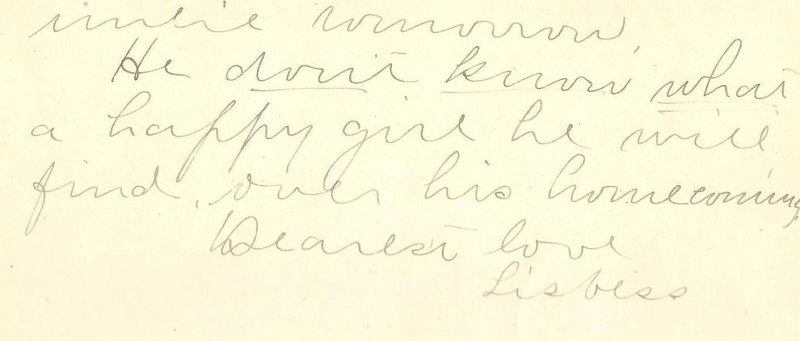 until tomorrow.
He don't know what
a happy girl he will
find, over his homecoming.
Dearest love
Lisbess